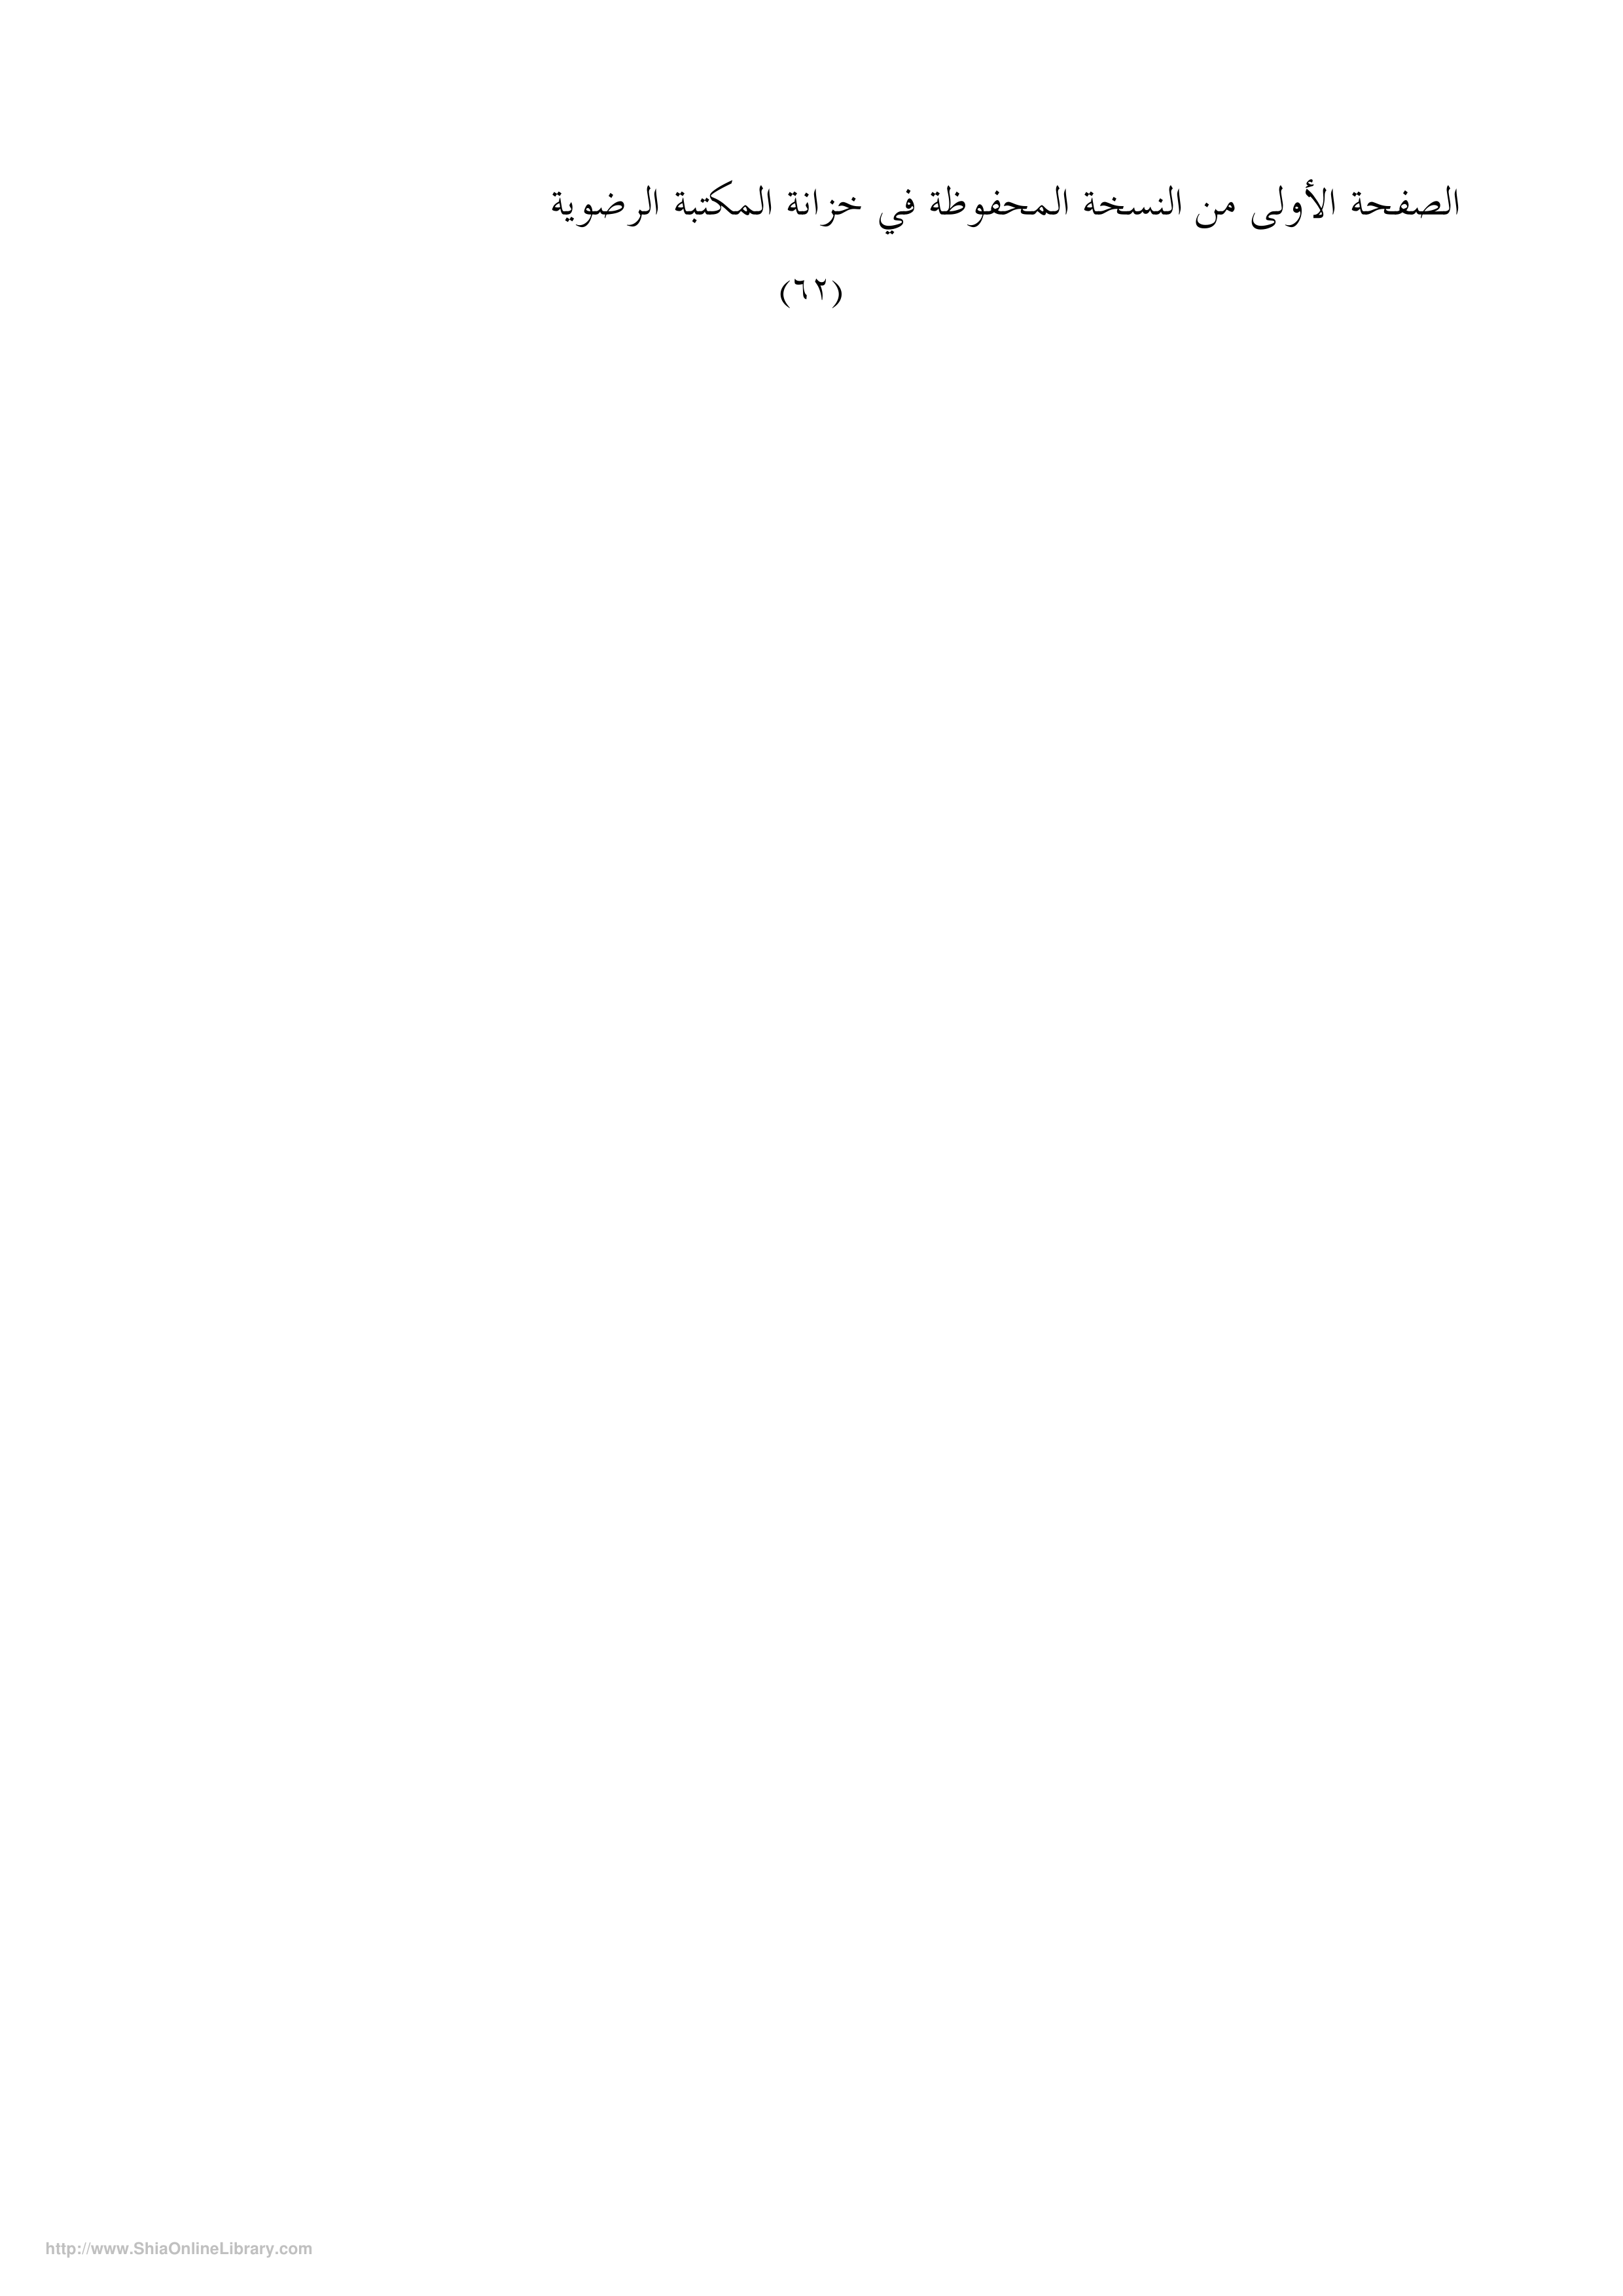 الصفحة الأولى من النسخة المحفوظة في خزانة المكتبة الرضوية
(٦٢)
http://www.ShiaOnlineLibrary.com